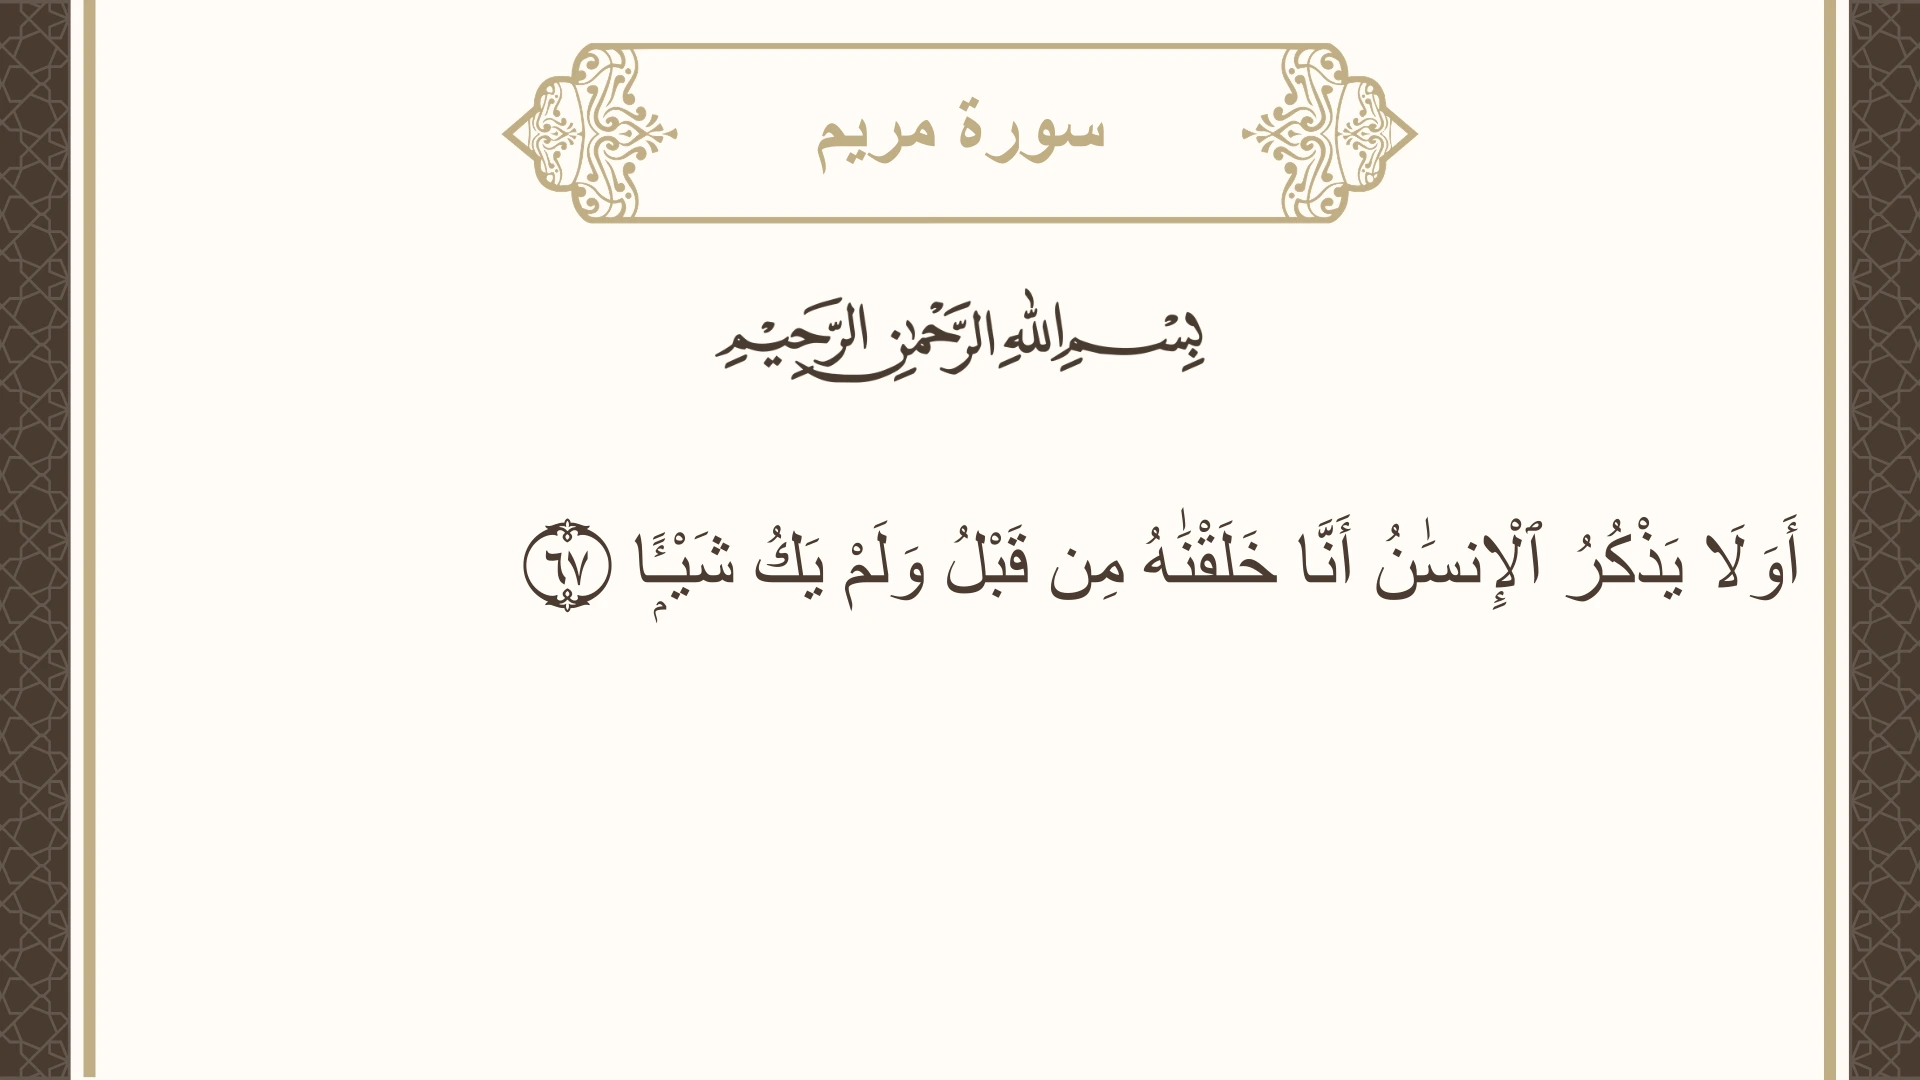 سورة مريم
بِسْمِ اللهِ الرَّحْمٰنِ الرَّحِيْمِ
أَوَلَا يَذْكُرُ ٱلْإِنسَٰنُ أَنَّا خَلَقْنَٰهُ مِن قَبْلُ وَلَمْ يَكُ شَيْـًٔاۭ ٦٧